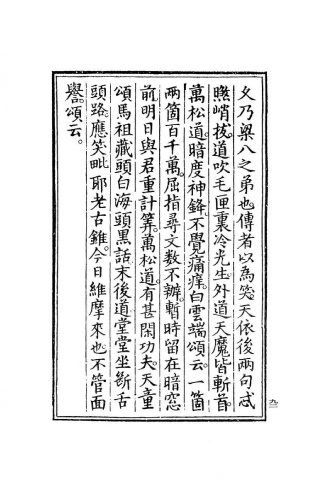 文乃梁八之弟也傳者以為笑天依後兩句忒
㬠峭拔道吹毛匣裏冷光生外道天魔皆斬首
萬松道暗度神鋒不覺痛痒白雲端頌云一箇
兩箇百千萬屈指尋文數不辦暫時留在暗窓
前明日與君重計筭萬松道有甚閑功夫天童
頌馬祖藏頭白海頭黑話末後道堂堂坐斷舌
頭路應笑毗耶老古錐今日維摩來也不管面
譽頌云。
九二